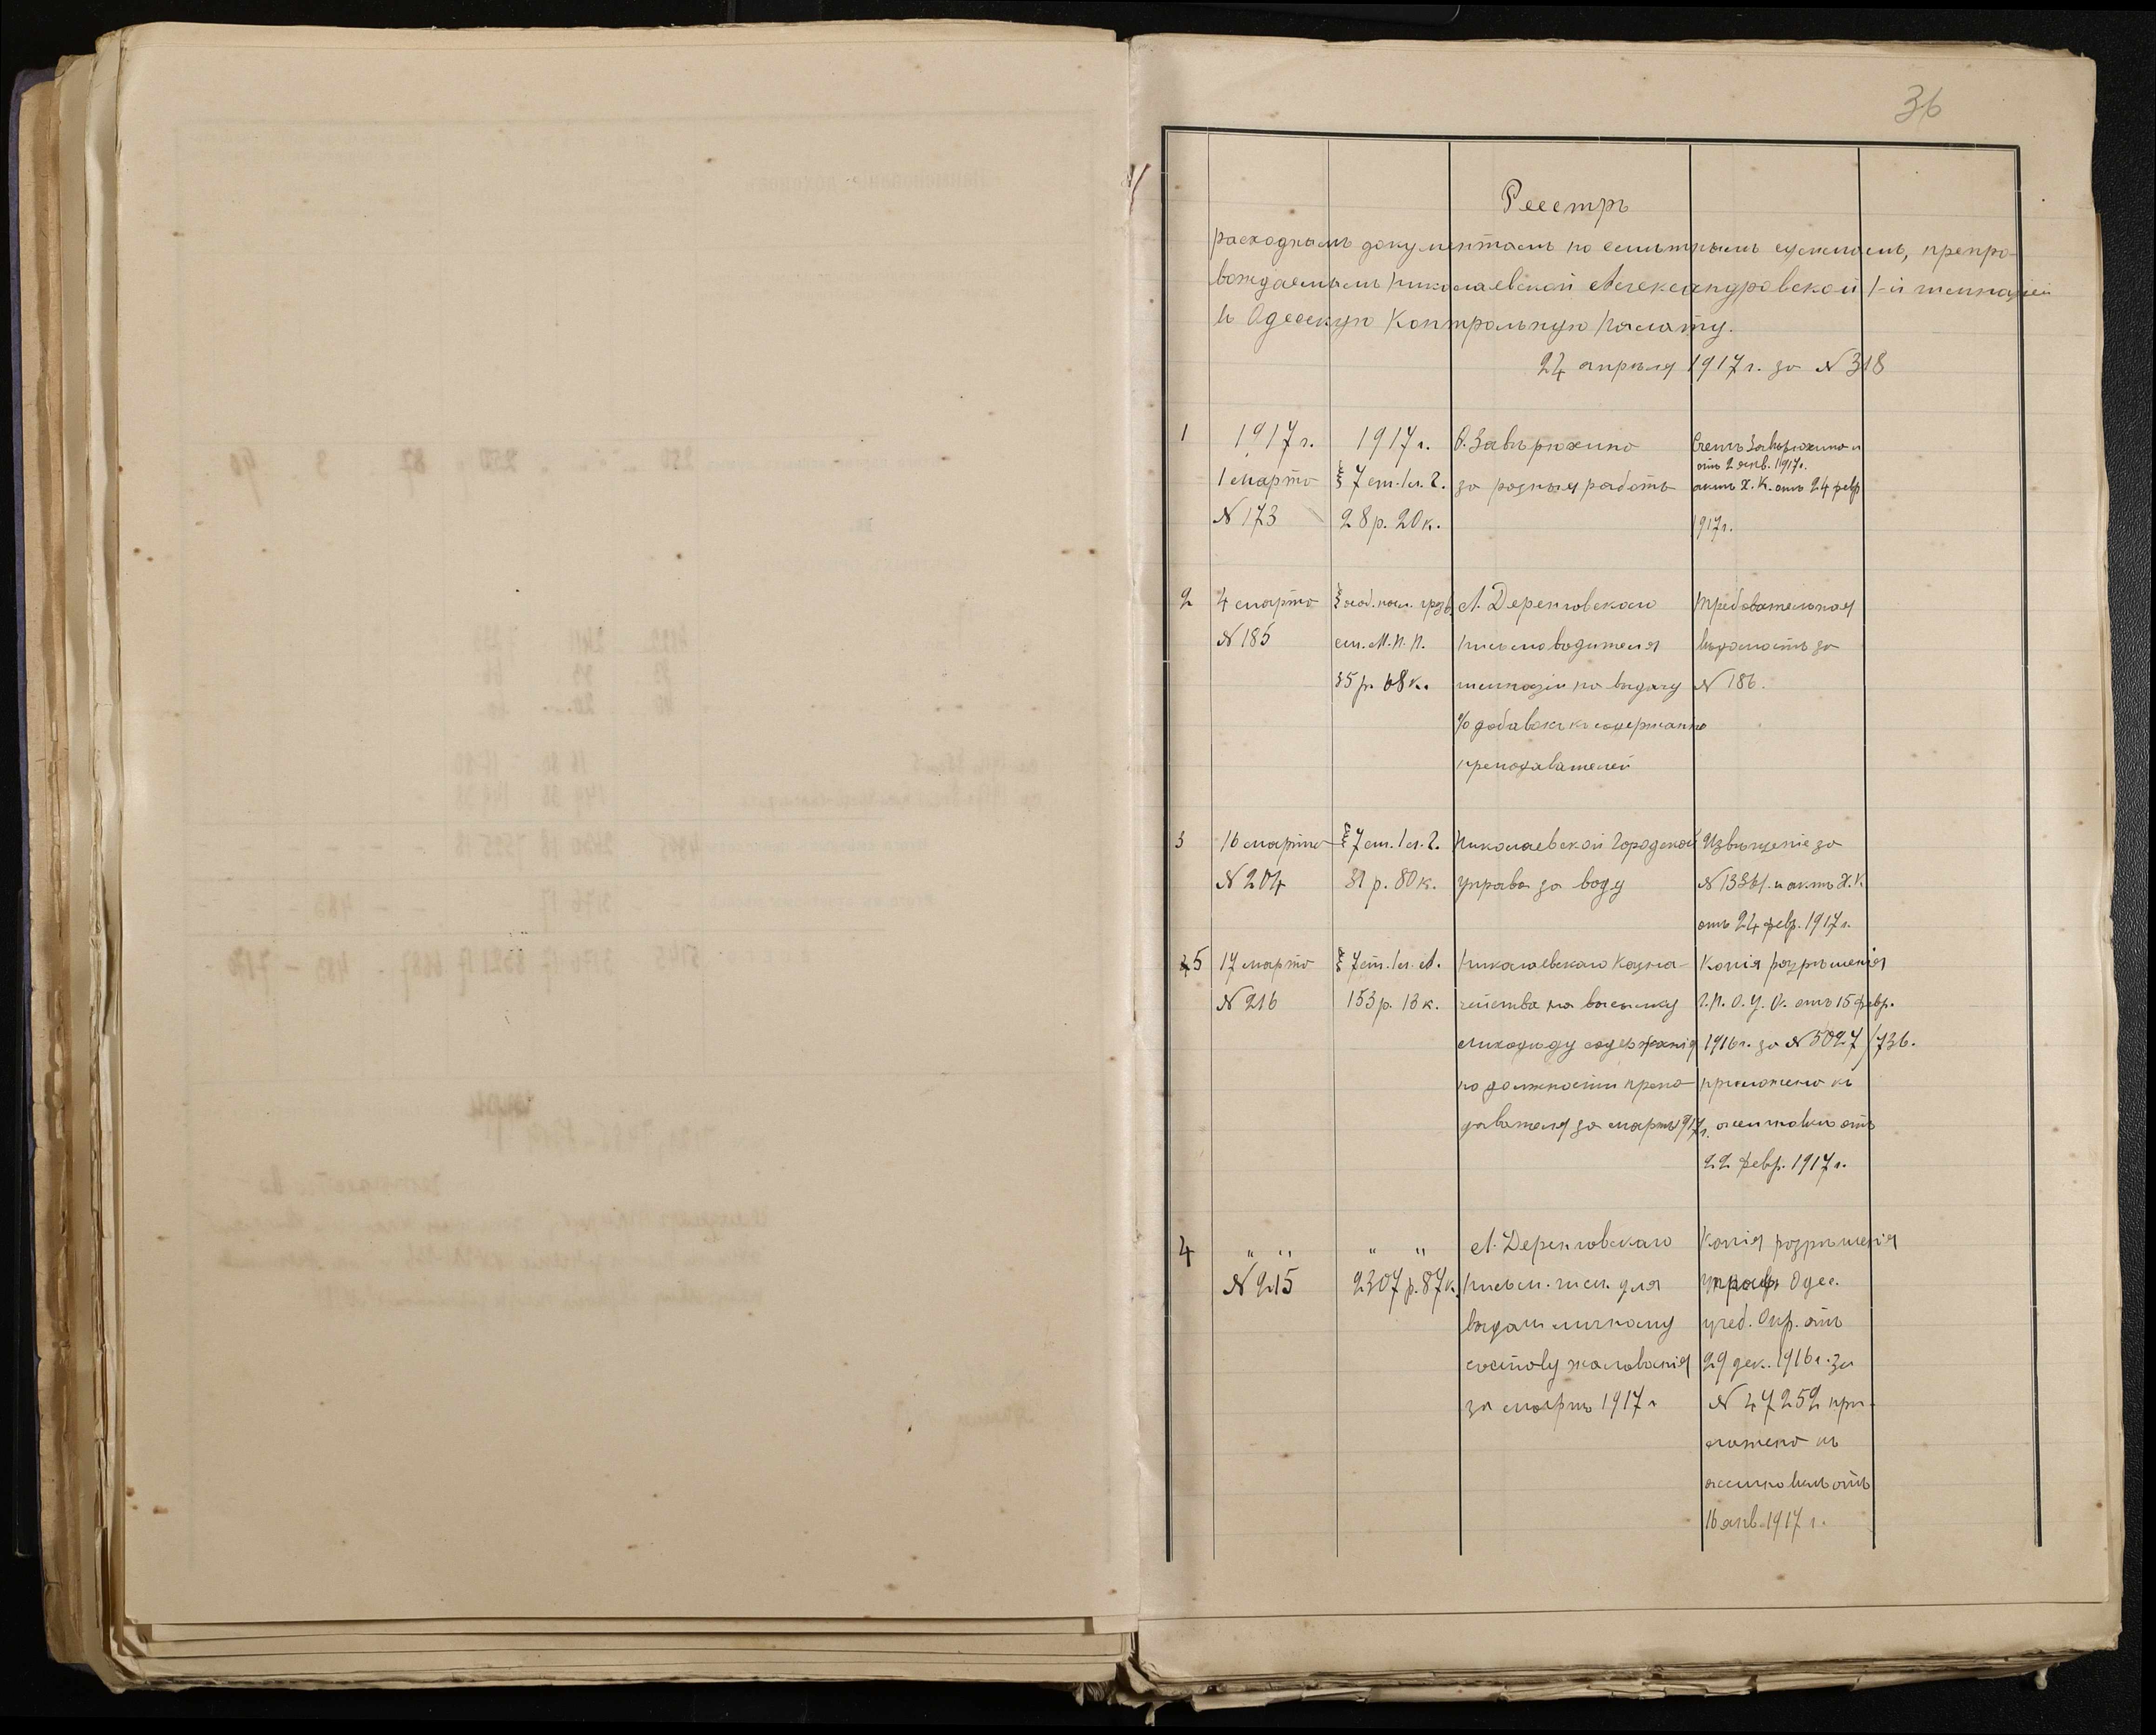 36
Реестръ
расходнымъ документамъ по смѣтнымъ суммамъ, препро-
вождаемымъ Николаевской Александровской 1-й гимназіей
въ Одесскую Контрольную Палату.
24 апрѣля 1917 г. за № 318
1
1917 г.
1 марта
№ 173
1917 г.
§ 7 ст. 1 л. 2.
28 р. 20 к.
Завѣрюхина
за разныя работы
Счетъ Завѣрюхина и
отъ 2 янв. 1917 г.
актъ Х. К. отъ 24 февр
1917 г.
2
4 марта
№ 185
§
см. М. Н. П.
35 р. 68 к.
А. Деренговскаго
письмоводителя
гимназіи на выдачу
% добавокъ къ содержанію
преподавателей
Требовательная
вѣдомость за
№ 186.
3
16 марта
№ 204
§ 7 ст. 1 л. 2.
31 р. 80 к.
Николаевской Городской
управа за воду
Извѣщеніе за
№ 13361 и актъ Х. К
отъ 24 февр. 1917 г.
5
17 марта
№ 216
§ 7 ст. 1 л. А.
153 р. 13 к.
Николаевскаго Казна-
чейства на высылку
содержанія
по должности препо-
давателя за мартъ 1917 г.
Копія разрѣшенія
Г. П. О. У. О. отъ 15 февр.
1916 г. за № 5027/736.
приложено къ
ассигновкѣ отъ
22 февр. 1917 г.
4
" "
№ 215
" "
2307 р. 87 к.
А. Деренговскаго
письм. гим. для
выдачи личному
составу жалованія
за мартъ 1917 г
Копія разрѣшенія
управ. Одес.
учеб. Окр. отъ
29 дек. 1916 г. за
№ 47252 при-
ложено къ
ассигновкѣ отъ
16 янв. 1917 г.